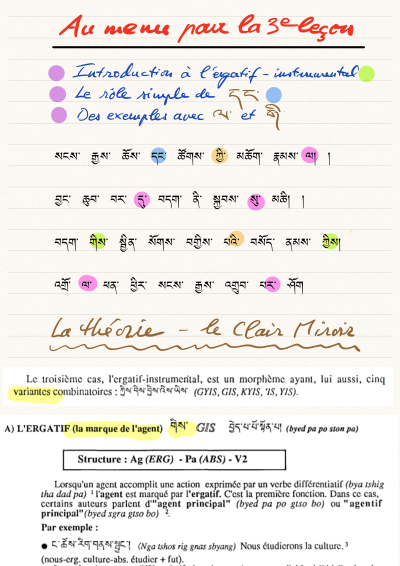 Au menu pour la 3e leçon
Introduction à l'ergatif-instrumental
Le rôle simple de དང་
Des exemples avec ལ་ et གི་
སངས་ རྒྱས་ ཆོས་ དང་ ཚོགས་ ཀྱི་ མཆོག་ རྣམས་ ལ། །
བྱང་ ཆུབ་ བར་ དུ་ བདག་ ནི་ སྐྱབས་ སུ་ མཆི། །
བདག་ གིས་ སྦྱིན་ སོགས་ བགྱིས་ པའི་ བསོད་ ནམས་ ཀྱིས།
འགྲོ་ ལ་ ཕན་ ཕྱིར་ སངས་ རྒྱས་ འགྲུབ་ པར་ ཤོག
La théorie - le Clair Miroir
Le troisième cas, l'ergatif-instrumental, est un morphème ayant, lui aussi, cinq
variantes combinatoires : ཀྱིས་གིས་གྱིས་འིས་ཡིས (GYIS, GIS, KYIS, 'IS, YIS).
A) L'ERGATIF (la marque de l'agent) གིས་ GIS བྱེད་པ་པོ་སྟོན་པ། (byed pa po ston pa)
Structure : Ag (ERG) - Pa (ABS) - V2
Lorsqu'un agent accomplit une action exprimée par un verbe différentiatif (bya tshig
tha dad pa) 1 l'agent est marqué par l'ergatif. C'est la première fonction. Dans ce cas,
certains auteurs parlent d'"agent principal" (byed pa po gtso bo) ou "agentif
principal"(byed sgra gtso bo) 2.
Par exemple :
● ང་ཚོས་རིག་གནས་སྦྱང་། (Nga tshos rig gnas sbyang) Nous étudierons la culture. 3
(nous-erg. culture-abs. étudier + fut).